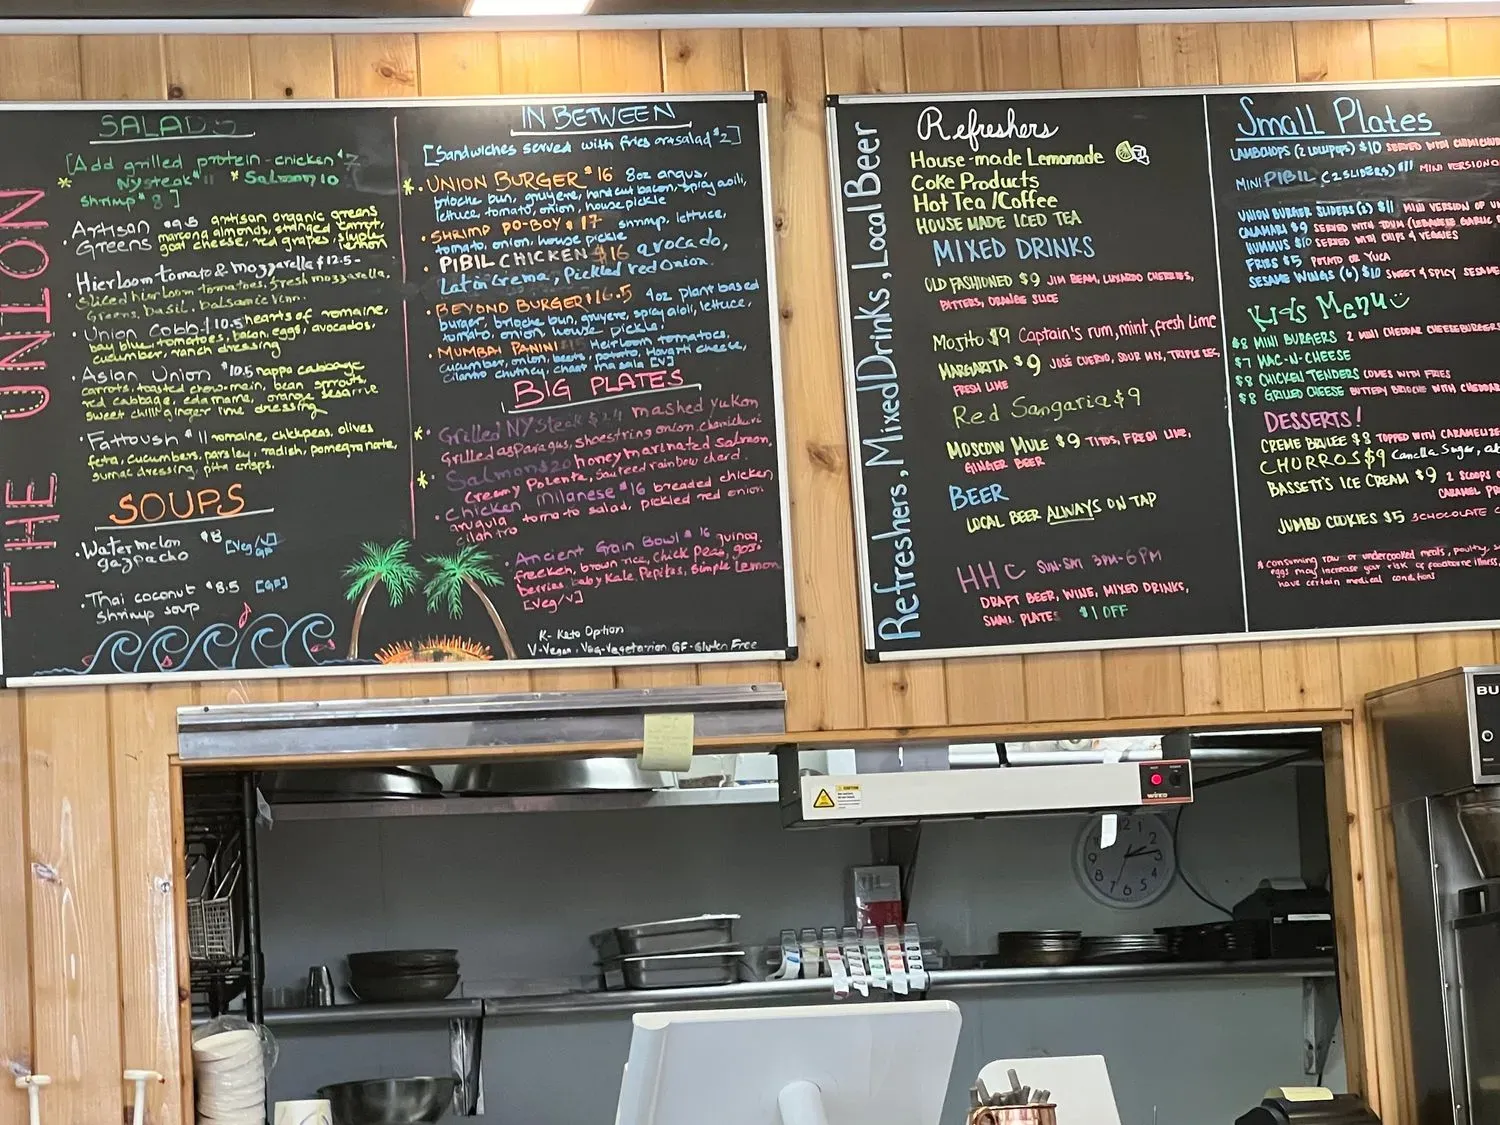 THE UNION
SALADS
[Add grilled protein - chicken $7
* NY steak $11 * Salmon 10
shrimp $8 ]
· Artisan $9.5 artisan organic greens
Greens marcona almonds, stranged carrot,
goat cheese, red grapes, simple
lemon
Hierloom tomato & mozzarella $12.5-
· sliced hierloom tomatoes, fresh mozzarella,
greens, basil, balsamic vinn.
· Union Cobb $10.5 hearts of romaine,
bay blue, tomatoes, bacon, eggs, avocados,
cucumber, ranch dressing
· Asian Union $10.5 nappa cabbage
carrots, toasted chow-main, bean sprouts,
red cabbage, edamame, orange sesame
sweet chilli ginger lime dressing
· Fattoush $11 romaine, chickpeas, olives
feta, cucumbers, parsley, radish, pomegranate,
sumac dressing, pita crisps.
SOUPS
· Watermelon $8 [Veg/V]
gazpacho GF
· Thai coconut $8.5 [GF]
shrimp soup
IN BETWEEN
[Sandwiches served with fries or salad $2]
* · UNION BURGER $16 8oz angus,
brioche bun, gruyere, hand cut bacon, spicy aoili,
lettuce, tomato, onion, house pickle
· SHRIMP PO-BOY $17 shrimp, lettuce,
tomato, onion, house pickle
· PIBIL CHICKEN $16 avocado,
Latin Crema, Pickled red Onion.
· BEYOND BURGER $16.5 4oz plant based
burger, brioche bun, gruyere, spicy aioli, lettuce,
tomato, onion, house pickle,
· MUMBAI PANINI $15 Heirloom tomatoes,
cucumber, onion, beets, potato, Havarti cheese,
cilantro chutney, chaat masala [V]
BIG PLATES
* · Grilled NY steak $24 mashed yukon
Grilled asparagus, shoestring onion, chimichuri
* · Salmon $20 honey marinated salmon,
Creamy Polenta, sauteed rainbow chard.
· Chicken Milanese $16 breaded chicken,
arugula tomato salad, pickled red onion
cilantro
· Ancient Grain Bowl $16 quinoa,
freekeh, brown rice, chick peas, goji
berries, baby Kale, Pepitas, Simple Lemon
[Veg/V]
K- Keto Option
V-Vegan, Veg-Vegetarian GF-Gluten Free
Refreshers, Mixed Drinks, Local Beer
Refreshers
House-made Lemonade
Coke Products
Hot Tea / Coffee
HOUSE MADE ICED TEA
MIXED DRINKS
OLD FASHIONED $9 JIM BEAM, LUXARDO CHERRIES,
BITTERS, ORANGE SLICE
Mojito $9 Captain's rum, mint, fresh lime
MARGARITA $9 JOSE CUERVO, SOUR MIX, TRIPLE SEC,
FRESH LIME
Red Sangaria $9
MOSCOW MULE $9 TITOS, FRESH LIME,
GINGER BEER
BEER
LOCAL BEER ALWAYS ON TAP
HHC SUN-SAT 3PM-6PM
DRAFT BEER, WINE, MIXED DRINKS,
SMALL PLATES $1 OFF
Small Plates
LAMBCHOPS (2 LOLLIPOPS) $10 SERVED WITH CHIMICHU
MINI PIBIL (2 SLIDERS) $11 MINI VERSION O
UNION BURGER SLIDERS (2) $11 MINI VERSION OF U
CALAMARI $9 SERVED WITH TOUM (LEBANESE GARLIC
HUMMUS $10 SERVED WITH CHIPS & VEGGIES
FRIES $5 POTATO OR YUCA
SESAME WINGS (6) $10 SWEET & SPICY SESAME
Kids Menu
$8 MINI BURGERS 2 MINI CHEDDAR CHEESEBURGERS
$7 MAC-N-CHEESE
$8 CHICKEN TENDERS COMES WITH FRIES
$8 GRILLED CHEESE BUTTERY BRIOCHE WITH CHEDDAR
DESSERTS!
CREME BRULEE $8 TOPPED WITH CARAMELIZE
CHURROS $9 Canella Sugar,
BASSETT'S ICE CREAM $9 2 SCOOPS
CARAMEL
JUMBO COOKIES $5 3 CHOCOLATE
* consuming raw or undercooked meats, poultry,
eggs may increase your risk of foodborne illness,
have certain medical conditions
CAUTION
winco
12 1 2 3 4 5 6 7 8 9
BU